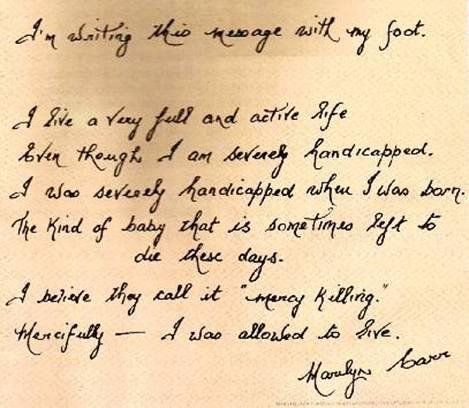 I'm writing this message with my foot.
I live a very full and active life
Even though I am severely handicapped.
I was severely handicapped when I was born.
The kind of baby that is sometimes left to
die these days.
I believe they call it "mercy killing."
Mercifully — I was allowed to live.
Marilyn Carr